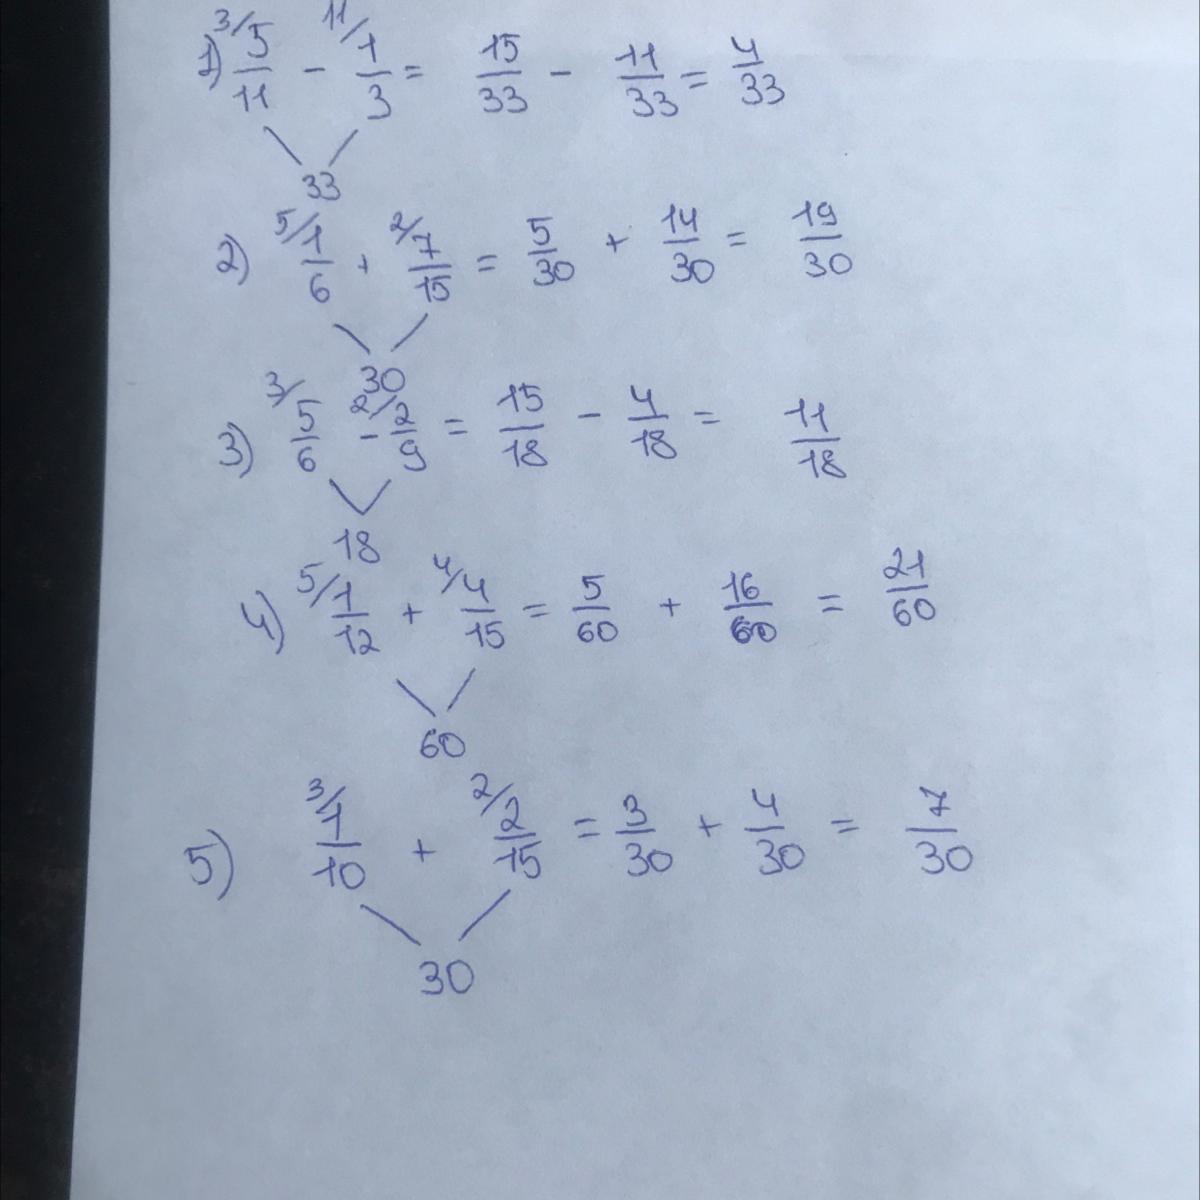 1) 3/ 5/11 - 11/ 1/3 = 15/33 - 11/33 = 4/33
33
2) 5/ 1/6 + 2/ 7/15 = 5/30 + 14/30 = 19/30
30
3) 3/ 5/6 - 2/ 2/9 = 15/18 - 4/18 = 11/18
18
4) 5/ 1/12 + 4/ 4/15 = 5/60 + 16/60 = 21/60
60
5) 3/ 1/10 + 2/ 2/15 = 3/30 + 4/30 = 7/30
30